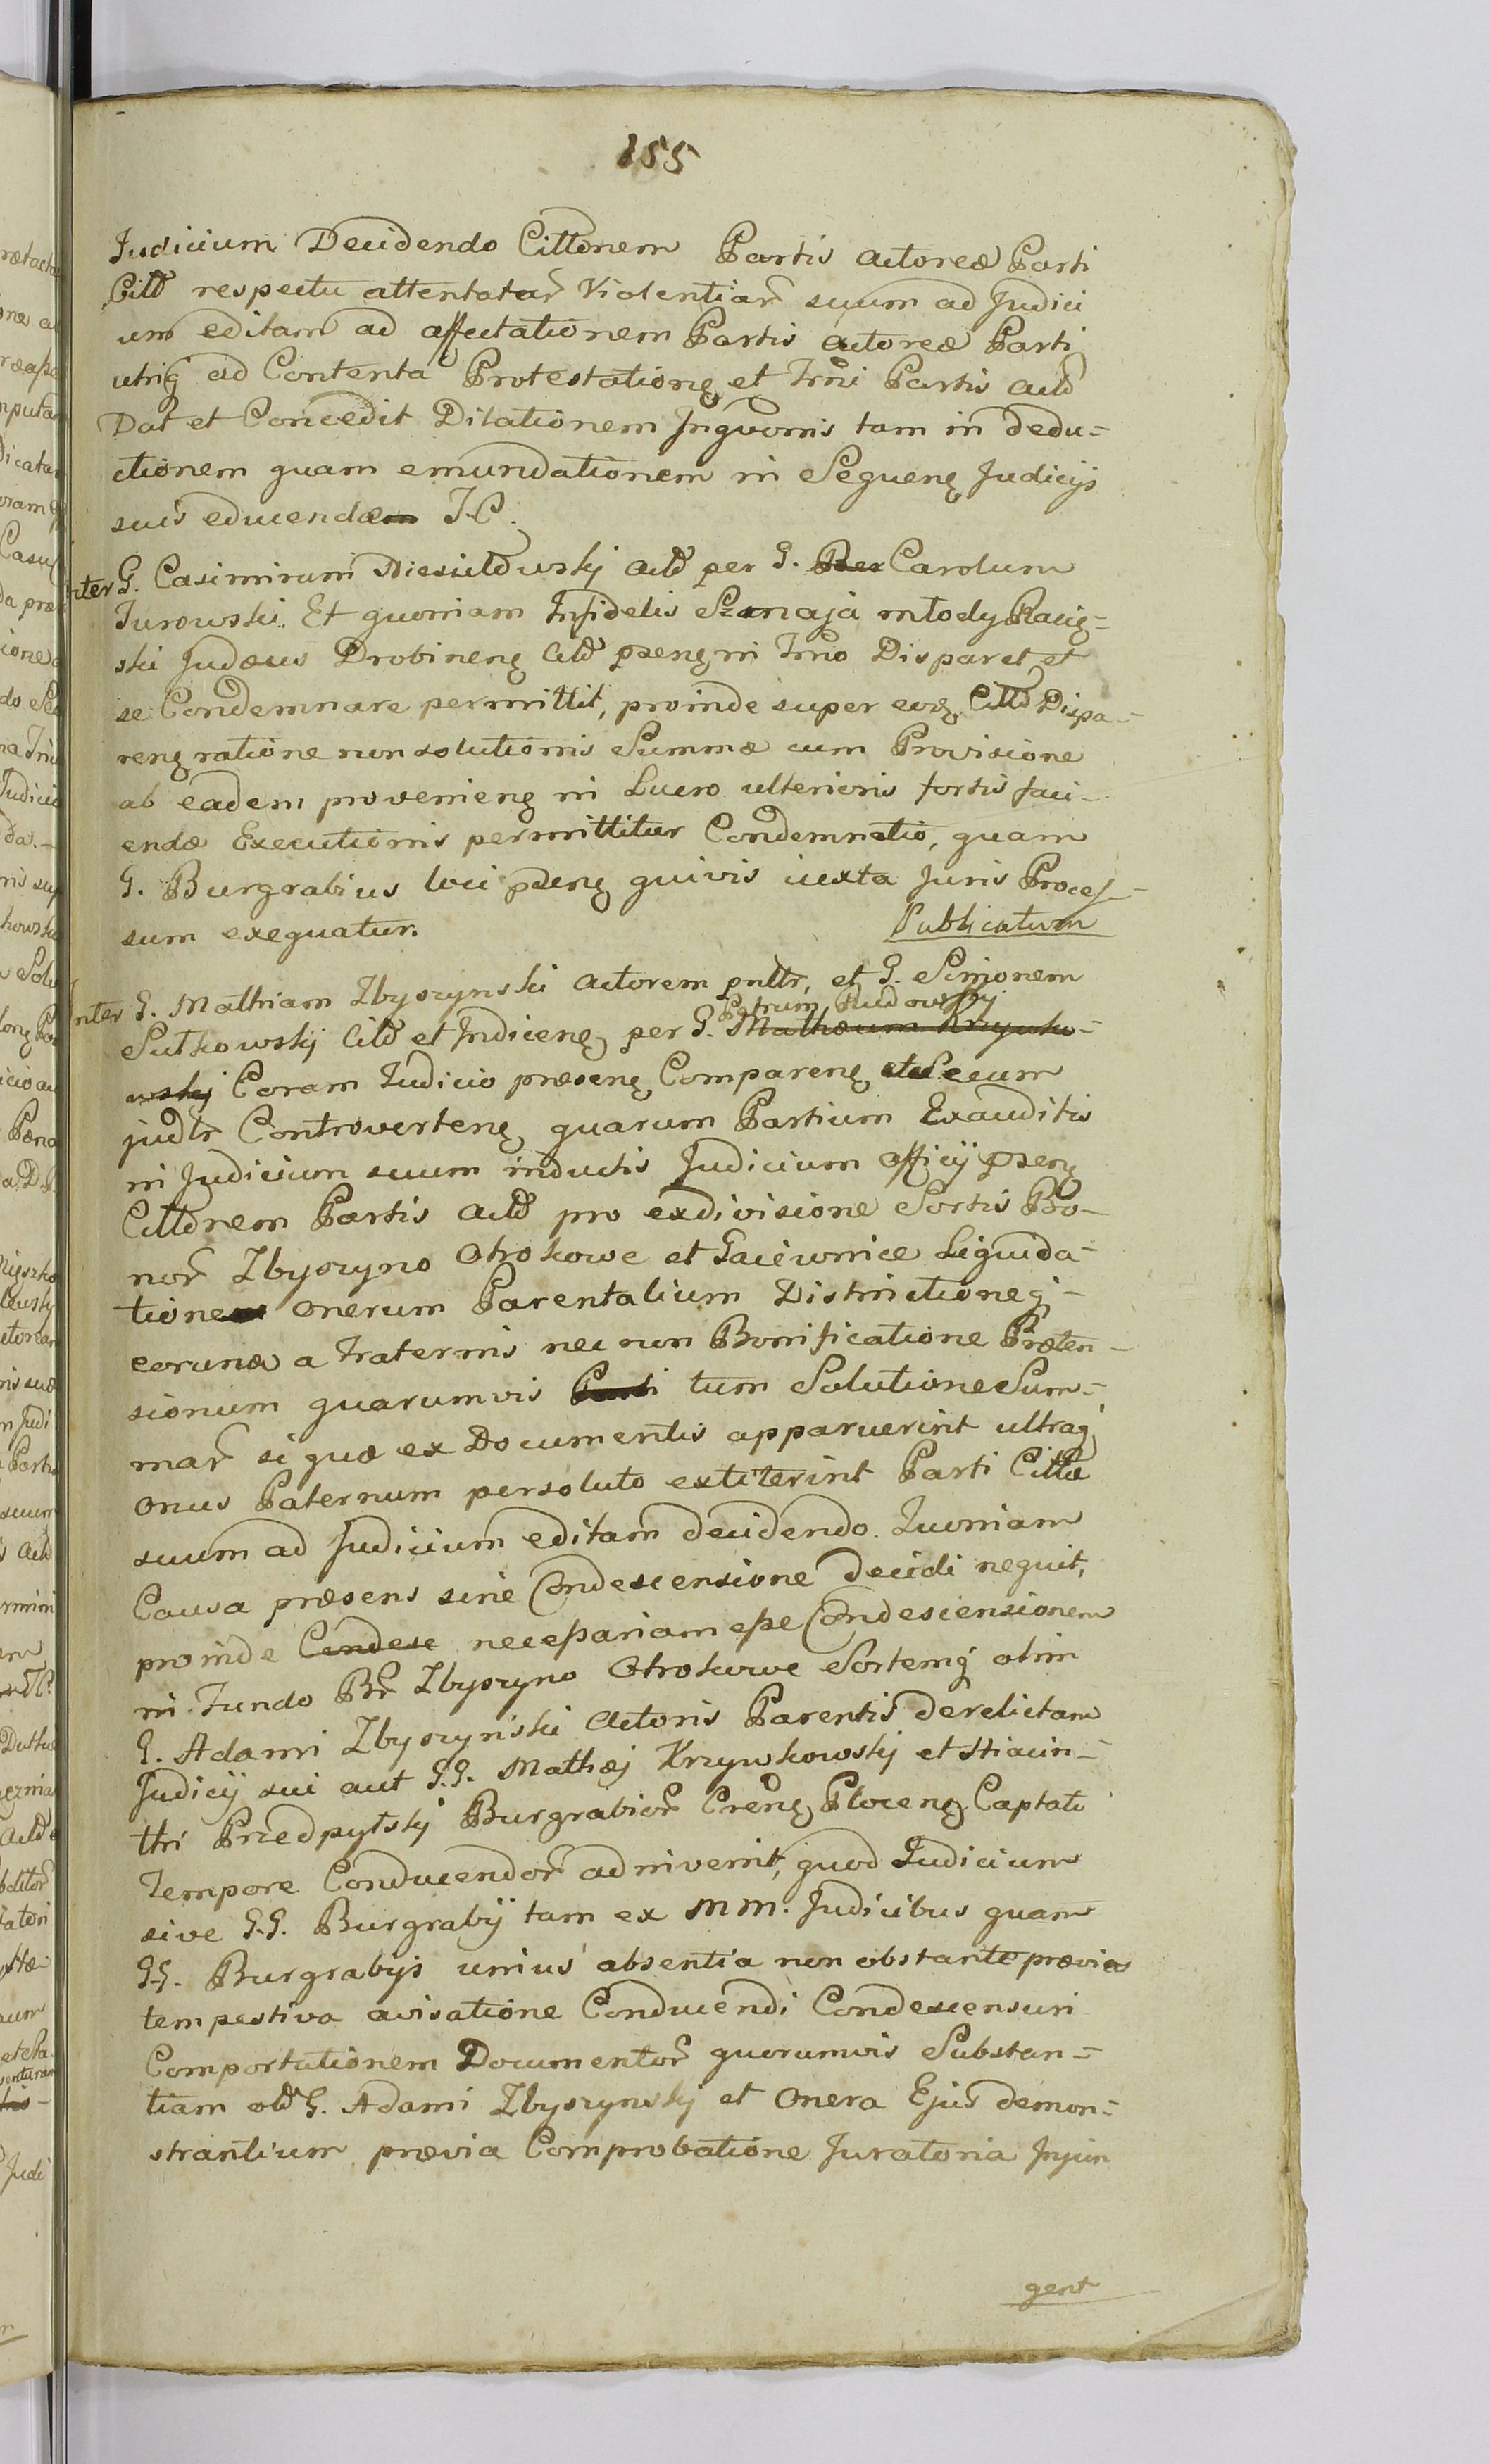 155
Judicium Decidendo Cittonem Partis Actoreæ Parti
Citt respectu attentatar Violentiar suum ad Judici
um editam ad affectationem Partis Actoreæ Parti
utriq ad Contenta Protestationę et Trmi Partis Actt
Dat et Concedit Dilationem Inqvonis tam in dedu=
ctionem quam emundationem in Sequenę Judicijs
suis educendæ J.C.
Inter G. Casimirum Niesiułdwskj Actt per G. Per Carolum
Turowski. Et quoniam Infidelis Szmaja młody Racię=
ski Judæus Drobinenę Citt pzenę in Trno Disparet et
se Condemnare permittit, proinde super eoę Citto Dispa=
renę ratione non solutionis Summæ cum Provisione
ab eadem provenienę in Lucro ulterioris fortis faci=
endæ Executionis permittitur Condemnatio, quam
G. Burgrabius loci pzenę quivis iuxta Juris Proces=
sum exequatur.
Publicatum
Inter G. Mathiam Zbyszynski Actorem pnltr, et G. Simonem
Petrum Rudowskj
Sutkowskj Citt et Indicenę per G. Mathæum Krzywko=
wskj Coram Judicio præsenę Comparenę et Secum
judtr Controvertenę quarum Partium Exauditis
in Judicium suum inductis Judicium Officij pzenę
Cittonem Partis Actt pro exdivisione Sortis Bo=
nor Zbyszyno Otrokowe et Gaiewnice Liquida=
tione Onerum Parentalium Districtioneq=
eorunda a Fraternis nec non Bonificatione Præten=
sionum quarumvis Parti tum Solutione Sum=
mar si quæ ex Documentis apparuerint ultraq
onus Paternum persoluto extiterint Parti Cittæ
suum ad Judicium editam decidendo. Quoniam
Causa præsens sine Condescensione decidi nequit,
proinde Condese necessariam esse Condescensionem
in Fundo Br Zbyszyno Otrokowe Sortemq olim
G. Adami Zbyszyński Actoris Parentis derelictam
Judicij sui aut G.G. Mathæj Krzywkowskj et Hiacin=
thi Przedpełskj Burgrabior Crenę Plocenę Captato
Tempore Conducendor adinvenit, quod Judicium
sive G.G. Burgrabij tam ex MM. Judicibus quam
G.G. Burgrabijs unius absentia non obstante prævia
tempestiva avisatione Conducendi Condescensuri
Comportationem Documentor quorumvis Substan=
tiam ol G. Adami Zbyszynskj et Onera Ejus demon=
strantium prævia Comprobatione Juratoria Injun
gent